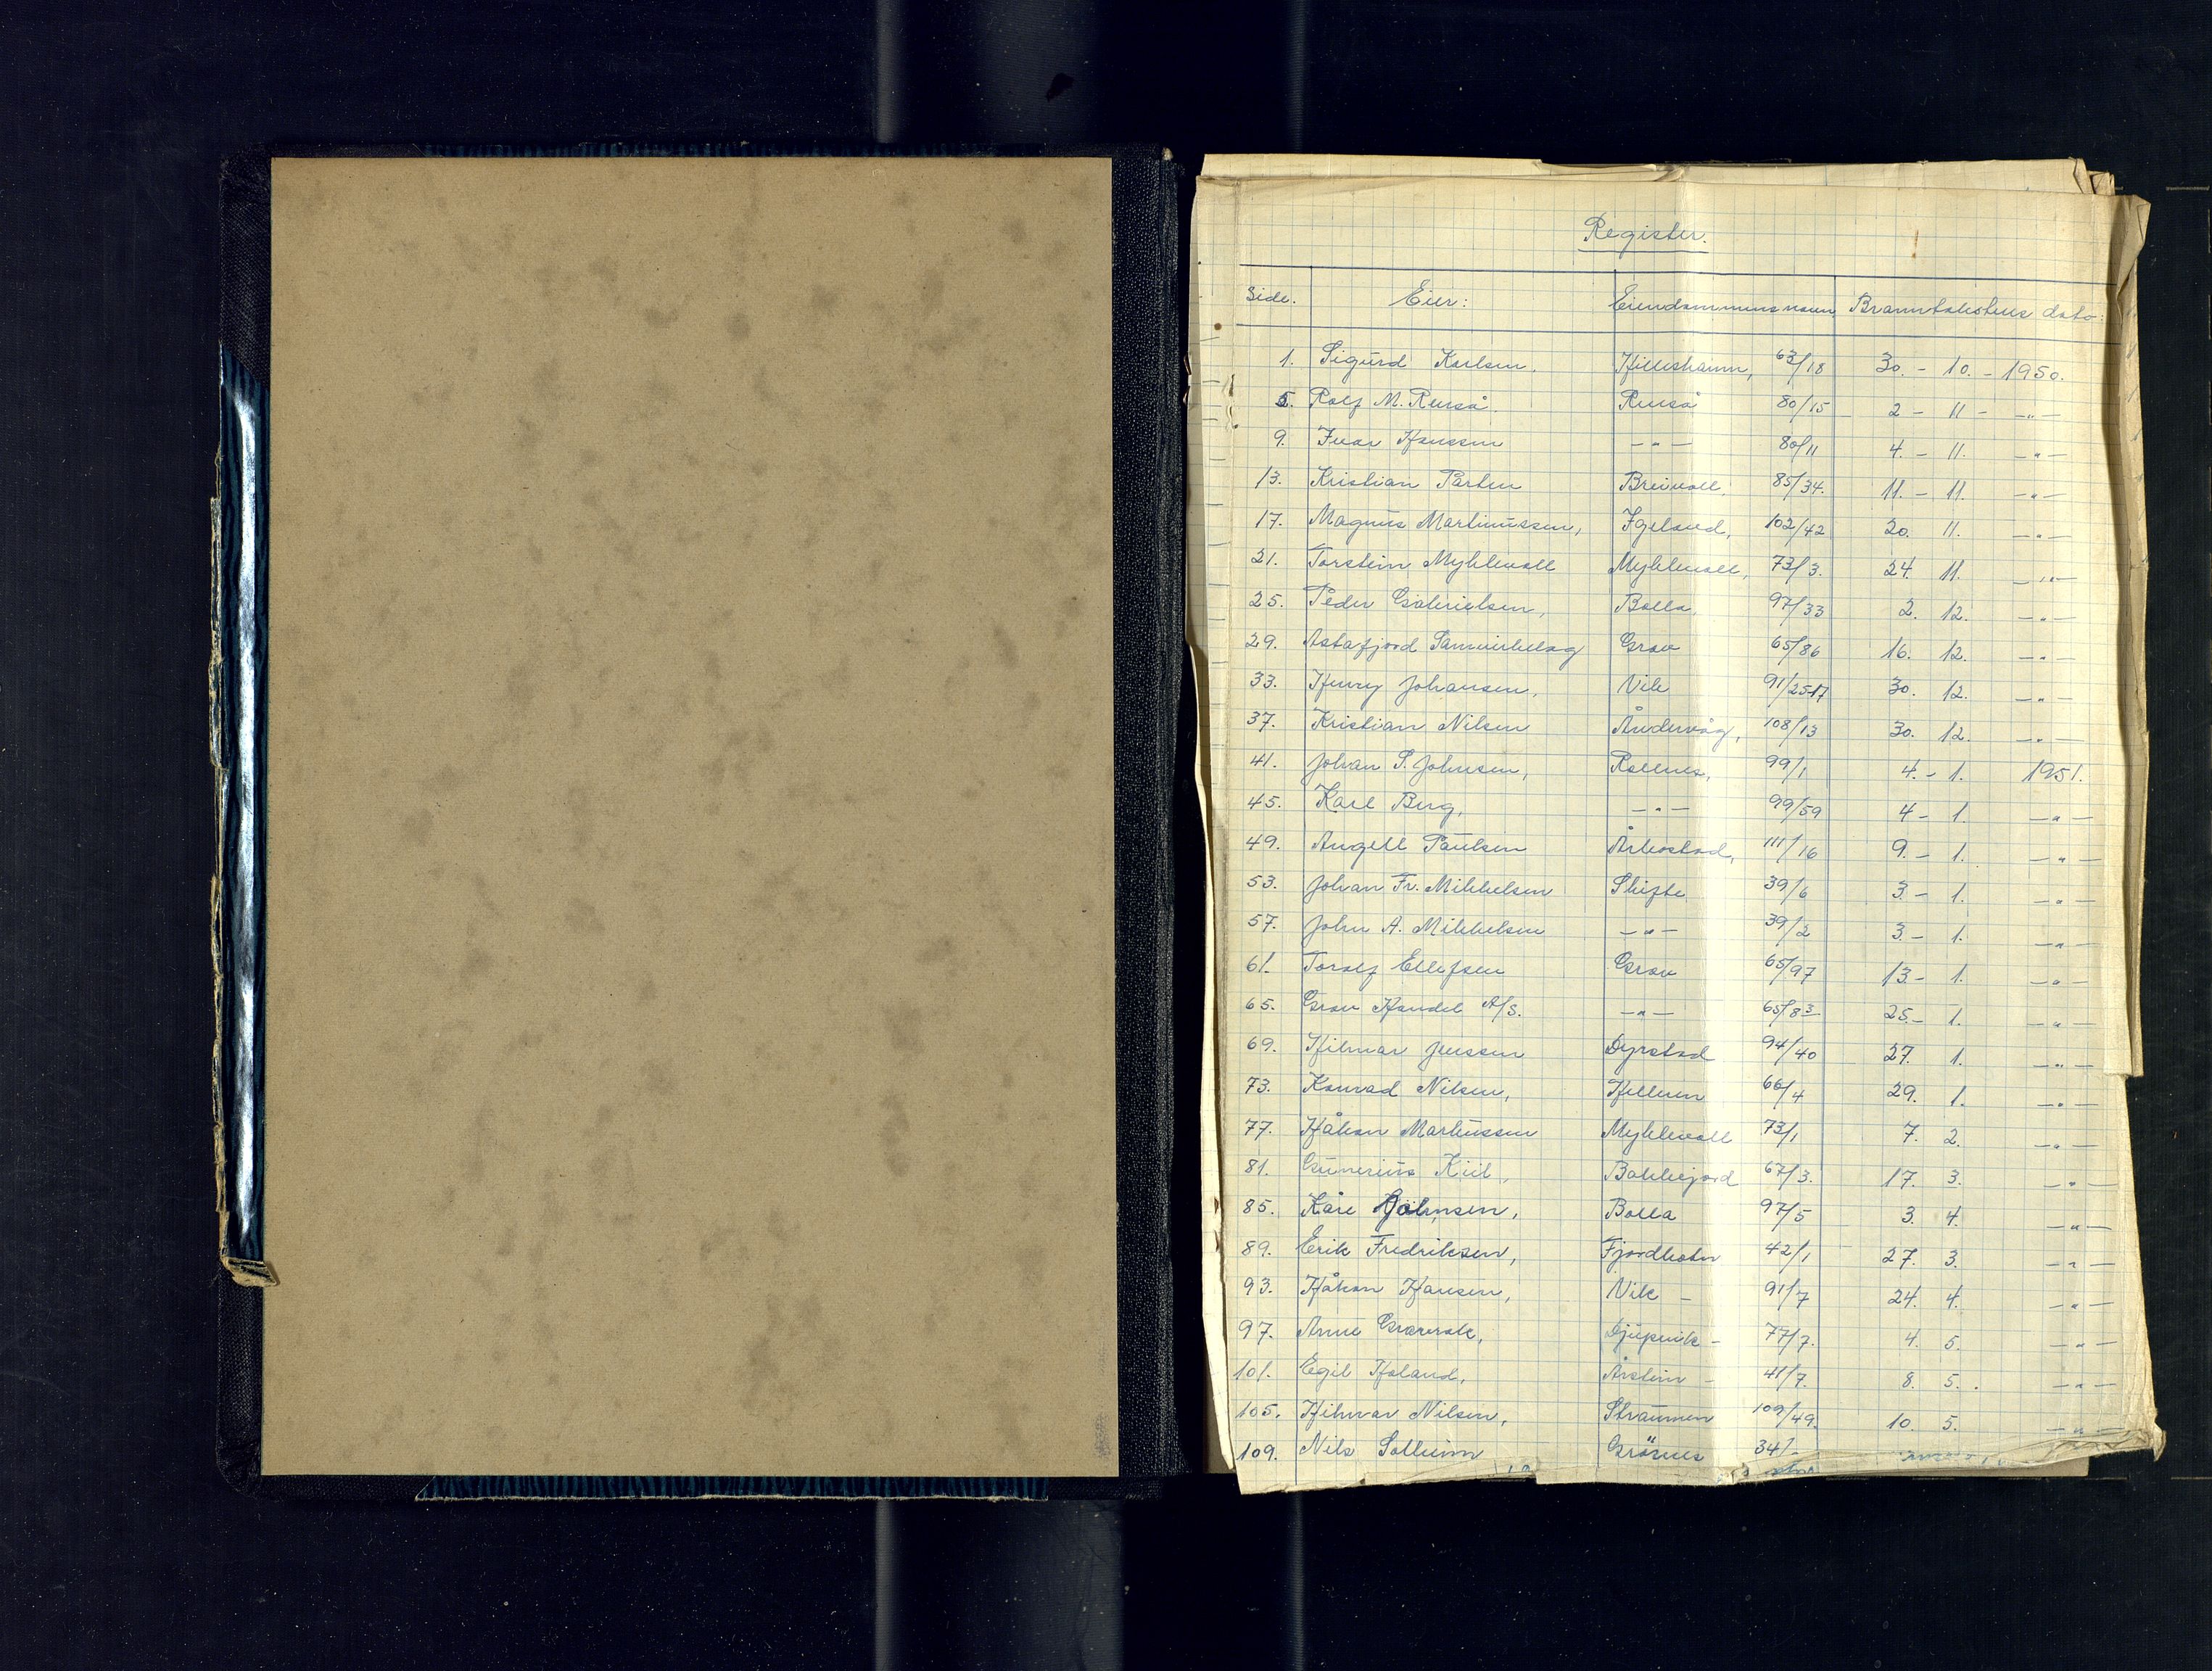 Register.
Side. Eier: Eiendommens navn Branntakstens dato:
1. Sigurd Karlsen. Hilleshamn, 63/18 30. - 10. - 1950.
5. Rolf M. Renså. Renså 80/15 2 - 11 - -"-
9. Ivar Hanssen -"- 80/11 4. - 11. -"-
13. Kristian Parten Breivoll. 85/34. 11. - 11. -"-
17. Magnus Martinussen, Igeland, 102/42 20. 11. -"-
21. Torstein Myhlevoll Myhlevoll, 73/3. 24. 11. -"-
25. Peder Gabrielsen, Bolla. 97/33 2. 12. -"-
29. Astafjord Samvirkelag Grov 65/86 16. 12. -"-
33. Henry Johansen, Vik 91/25-17 30. 12. -"-
37. Kristian Nilsen Åndervåg, 108/13 30. 12. -"-
41. Johan S. Johnsen, Rollnes, 99/1 4. - 1. 1951.
45. Karl Berg, -"- 99/59 4 - 1. -"-
49. Angell Paulsen Årbostad, 111/16 9. - 1. -"-
53. Johan Fr. Mikkelsen Skifte 39/6 3 - 1. -"-
57. John A. Mikkelsen -"- 39/2 3. - 1. -"-
61. Torolf Ellefsen Grov 65/97 13 - 1. -"-
65. Grov Handel A/S. -"- 65/83 25. - 1. -"-
69. Hilmar Jenssen Dyrstad 94/40 27. 1. -"-
73. Konrad Nilsen, Hellum 66/4 29. 1. -"-
77. Håkon Markussen Myhlevoll 73/1 7. 2. -"-
81. Gunerius Kiil, Bakkejord 67/3. 17. 3. -"-
85. Kåre Johnsen, Bolla 97/5 3. 4. -"-
89. Erik Fredriksen, Fjordbotn 42/1 27. 3. -"-
93. Håkon Hansen, Vik - 91/7 24. 4. -"-
97. Arne Djupvik - 77/7. 4. 5. -"-
101. Egil Haland, Årstein - 41/7. 8. 5. -"-
105. Hilmar Nilsen, Straumen 109/49. 10. 5. -"-
109. Nils Solheim Grøsnes 34/-